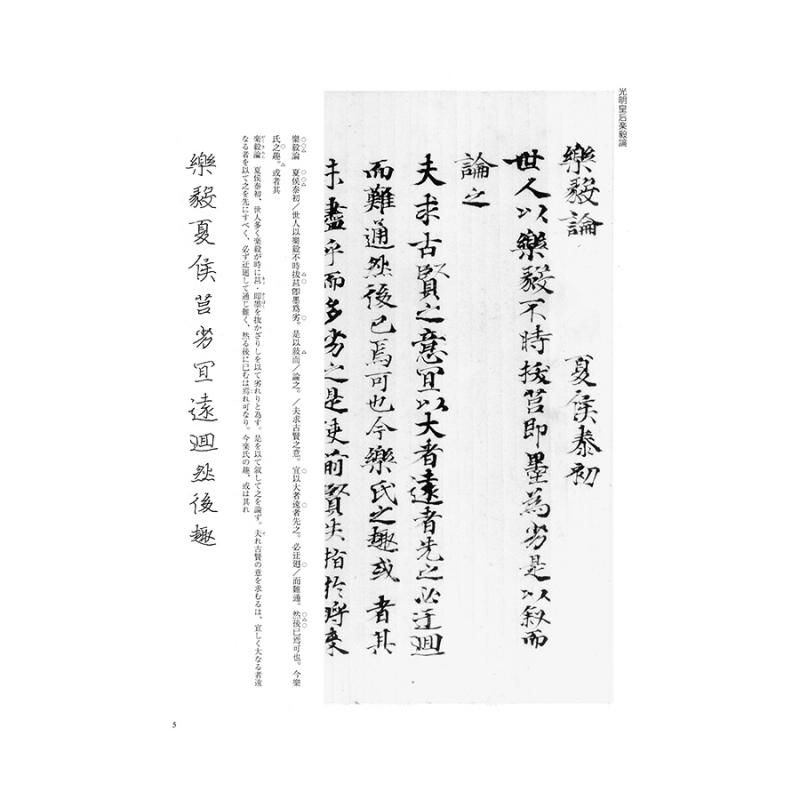 光明皇后楽毅論
樂毅論　夏侯泰初
世人以樂毅不時拔莒即墨為劣是以叙而
論之
夫求古賢之意冝以大者遠者先之必迂迴
而難通然後已焉可也今樂氏之趣或者其
未盡乎而多劣之是使前賢失指於將來
樂毅論　夏侯泰初／世人以樂毅不時拔莒卽墨爲劣。是以敍而／論之。／夫求古賢之意。宜以大者遠者先之。必迂迴／而難通。然後已焉可也。今樂
氏之趣。或者其
楽毅論　夏侯泰初、世人多く楽毅が時に莒・即墨を抜かざりしを以て劣れりと為す。是を以て叙して之を論ず。夫れ古賢の意を求むるは、宜しく大なる者遠
なる者を以て之を先にすべく、必ず迂廻して通じ難く、然る後に已むは焉れ可なり。今楽氏の趣、或は其れ
樂毅夏侯莒劣冝遠迴然後趣
5